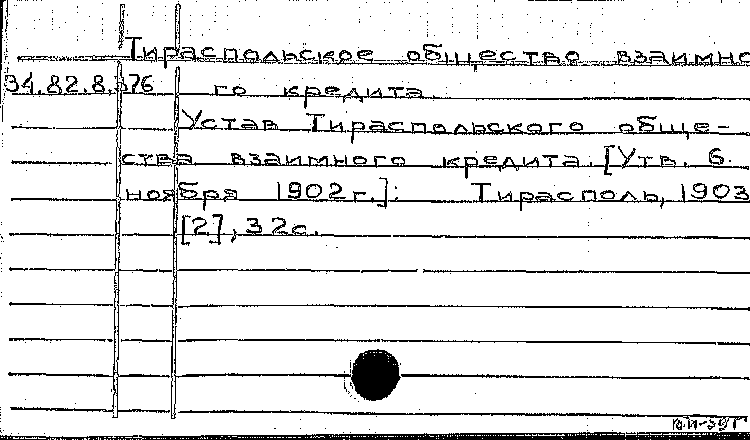 Тираспольское общество взаимно
34.82.8.376 го кредита.
Устав Тираспольского обще-
ства взаимного кредита. [Утв. 6
ноября 1902 г.]: Тирасполь, 1903
[2], 32с.